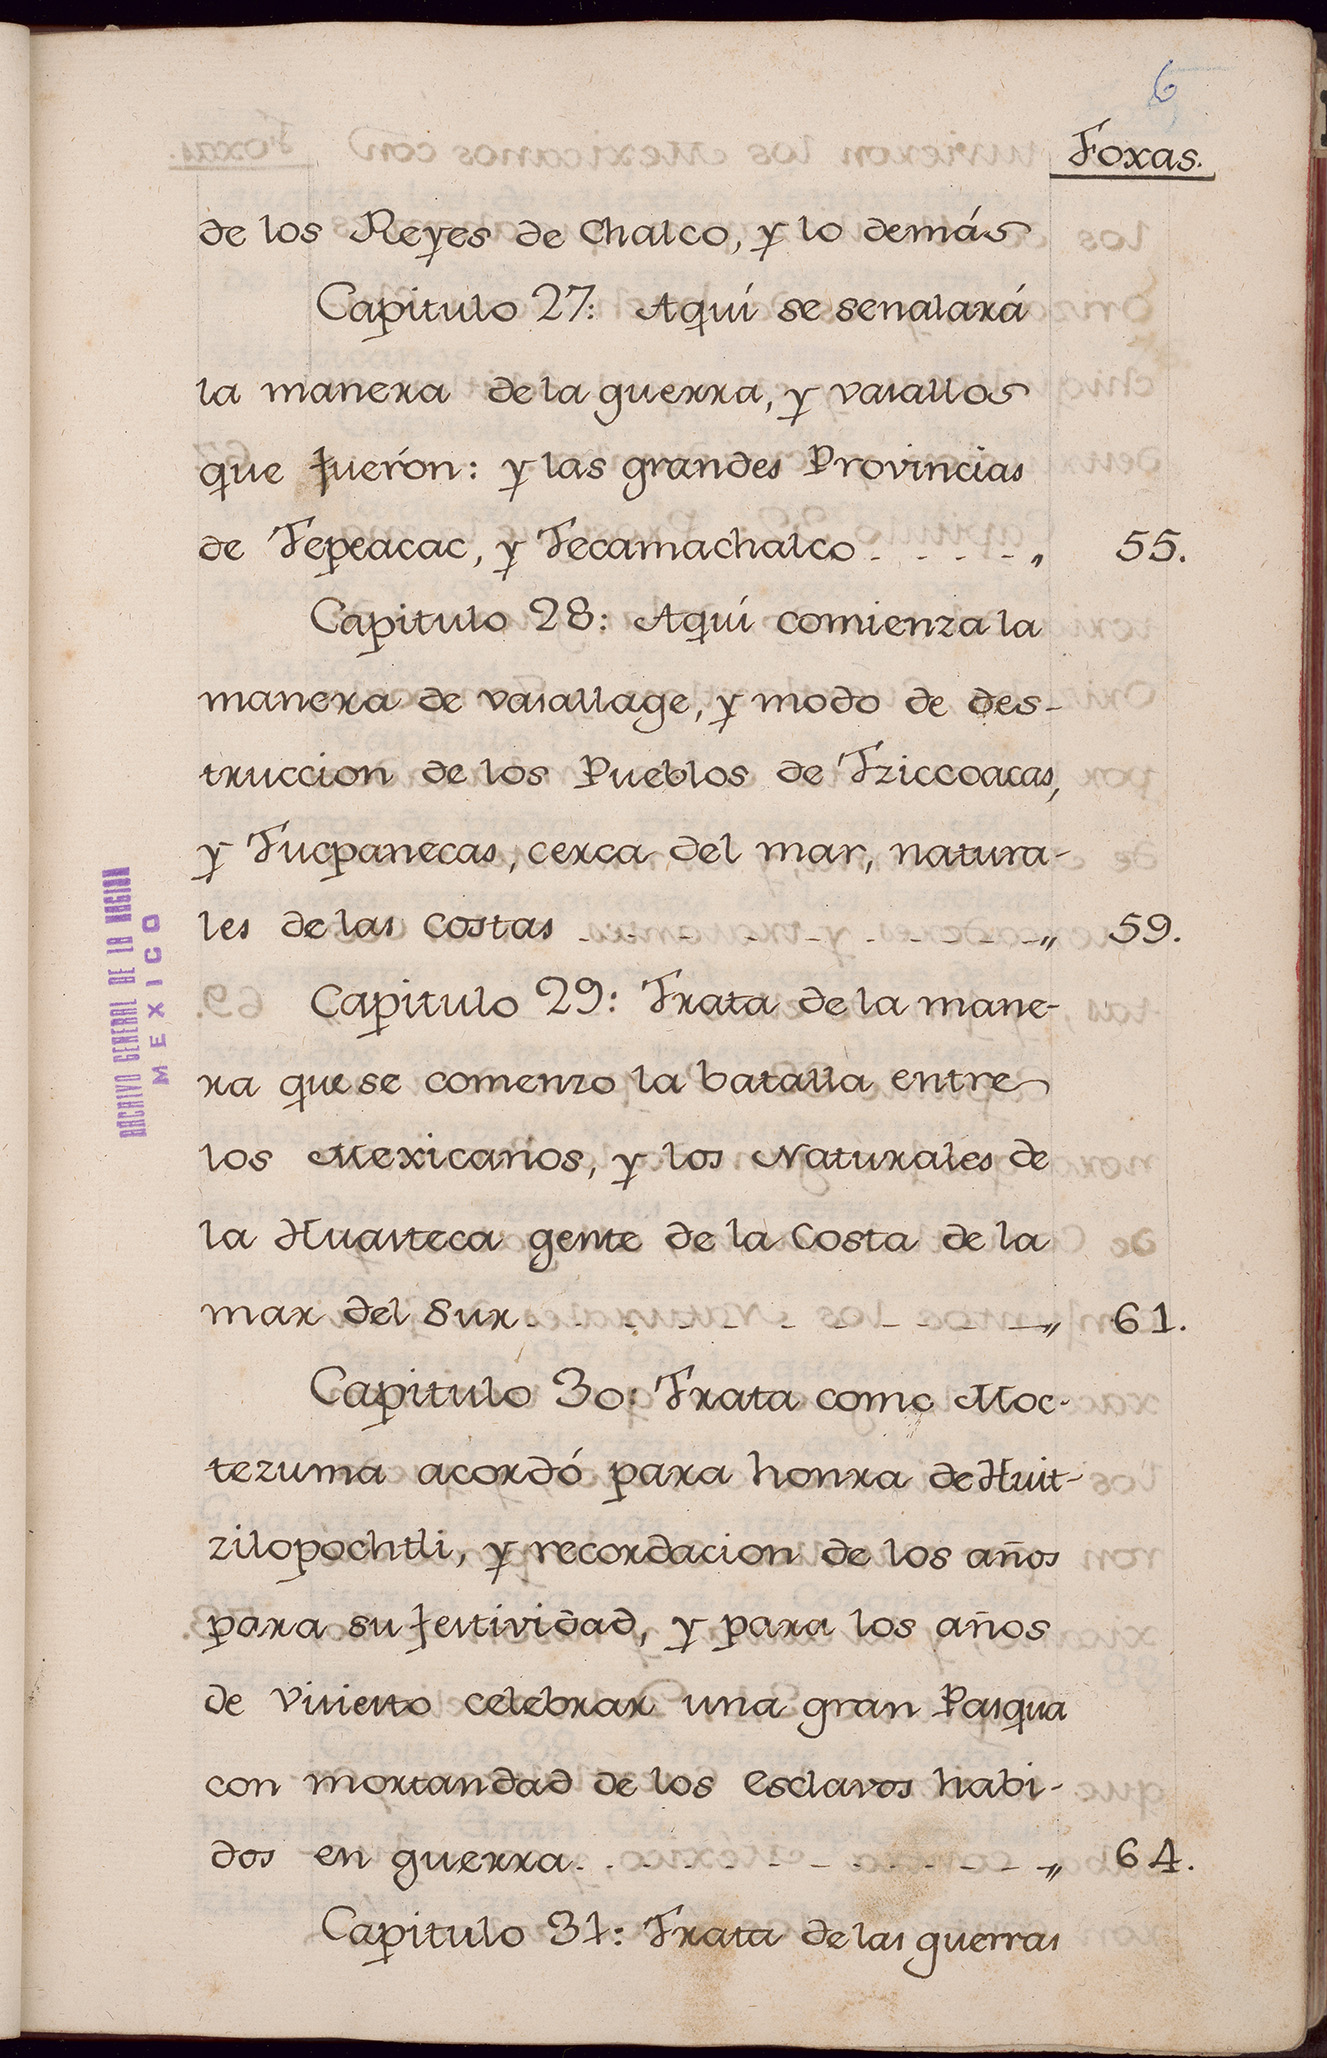 6
Foxas.
de los Reyes de Chalco, y lo demás
Capitulo 27: Aquí se senalará
la manera de la guerra, y vasallos
que fuerón: y las grandes Provincias
de Tepeacac, y Tecamachalco - - - - - „ 55.
Capitulo 28: Aquí comienza la
manera de vasallage, y modo de des-
truccion de los Pueblos de Tziccoacas,
y Tucpanecas, cerca del mar, natura-
les de las costas - - - - - - - - - - „ 59.
Capitulo 29: Trata de la mane-
ra que se comenzo la batalla entre
los Mexicanos, y los Naturales de
la Huasteca gente de la Costa de la
mar del Sur - - - - - - - - - - - „ 61.
Capitulo 30: Trata como Moc-
tezuma acordó para honra de Huit-
zilopochtli, y recordacion de los años
para su festividad, y para los años
de Visiesto celebrar una gran Pasqua
con mortandad de los esclavos habi-
dos en guerra - - - - - - - - - - - „ 64.
Capitulo 31: Trata de las guerras
ARCHIVO GENERAL DE LA NACION
MEXICO